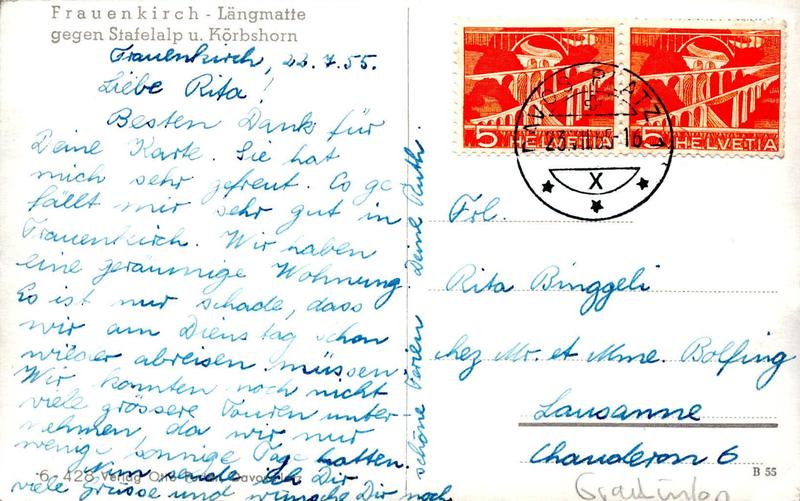 Frauenkirch - Längmatte
gegen Stafelalp u. Körbshorn
Frauenkirch, 22.7.55.
Liebe Rita!
Besten Dank für
Deine Karte. Sie hat
mich sehr gefreut. Es ge
fällt mir sehr gut in
Frauenkirch. Wir haben
eine geräumige Wohnung.
Es ist nur schade, dass
wir am Dienstag schon
wieder abreisen müssen.
Wir konnten noch nicht
viele grössere Touren unter
nehmen, da wir nur
wenig sonnige Tage hatten.
Nun sende ich Dir
viele Grüsse und wünsche Dir noch
schöne Ferien Deine Ruth.
6 - 428 Verlag Otto
B 55
5 HELVETIA
5 HELVETIA
DAVOS PLATZ 1
X
Frl.
Rita Binggeli
chez Mr. et Mme. Bolfing
Lausanne
Chauderon 6